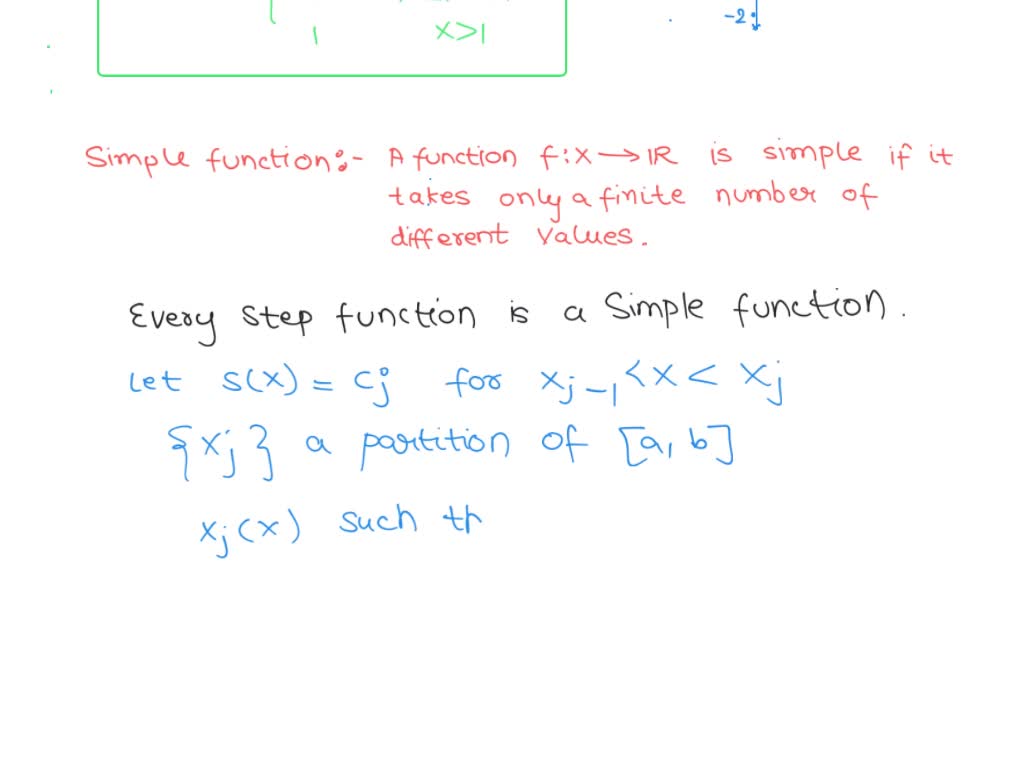 1 x>1
-2
Simple function:- A function f:X→IR is simple if it
takes only a finite number of
different values.
Every step function is a simple function.
Let s(x) = cj for xj-1 <x< xj
{xj} a partition of [a, b]
xj(x) such th